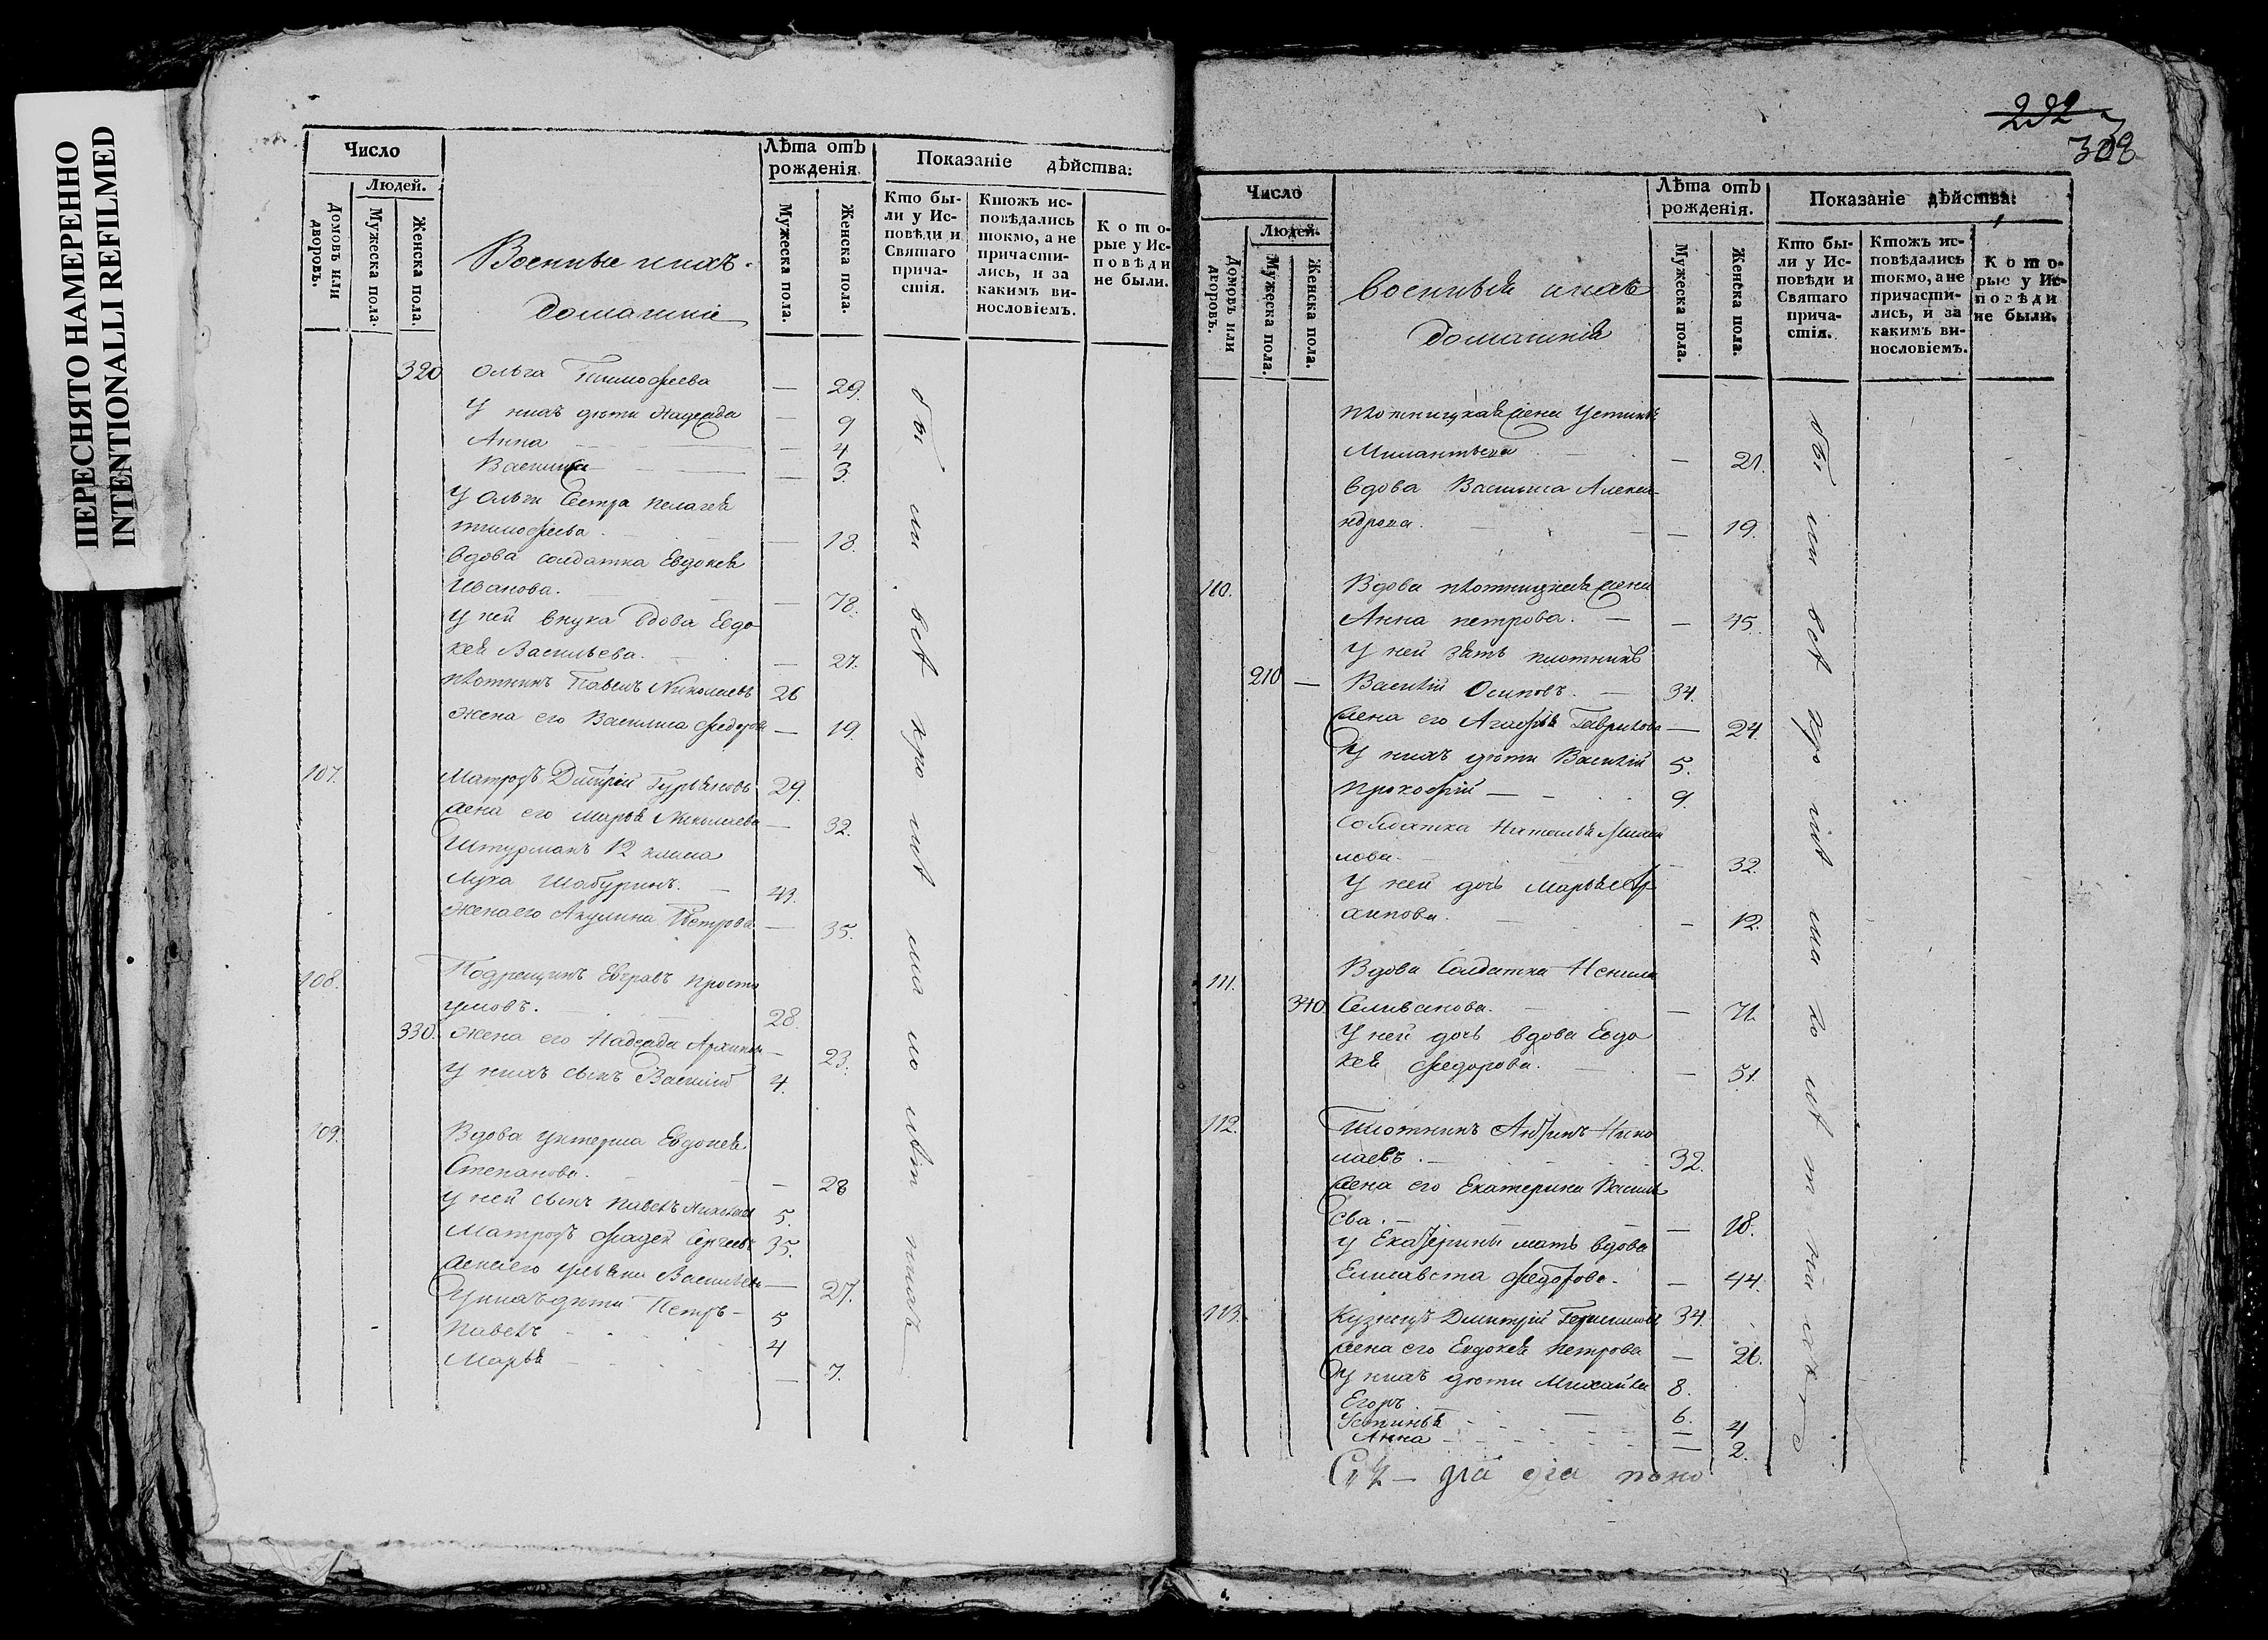 ПЕРЕСНЯТО НАМЕРЕННО
INTENTIONALLI REFILMED
Число
Людей.
Домовъ или дворовъ.
Мужеска пола.
Женска пола.
Военные ихъ
домашніе
Лѣта отъ рожденія.
Мужеска пола.
Женска пола.
Показаніе дѣйства:
Кто были у Исповѣди и Святаго причастія.
Ктожъ исповѣдались токмо, а не причастились, и за какимъ винословіемъ.
Которые у Исповѣди не были.
320 Ольга Тимофеева — 29.
У нихъ дѣти Надежда — 9
Анна — 4
Василиса — 3.
У Ольги Сестра Пелагея
Тимофеева. — 18.
Вдова солдатка Евдокея
Иванова. — 78.
У ней внука вдова Евдо
кея Васильева. — 27.
плотникъ Павелъ Николаевъ 26
жена его Василиса Федорова — 19.
107. Матросъ Дмитрій Гурьяновъ 29.
жена его Марья Николаева — 32.
Штурманъ 12 класа
Лука Шабуринъ. — 43.
жена его Акулина Петрова — 35.
108. Подрещикъ Евгравъ Просто
умовъ. 28.
330. жена его Надежда Архипова — 23.
У нихъ сынъ Василій 4.
109. Вдова унтерша Евдокея
Степанова. — 28
У ней сынъ Павелъ Николаевъ 5.
Матросъ Фадей Сергеевъ 35.
жена его Ульяна Васильева — 27.
У нихъ дѣти Петръ — 5
Павелъ 4
Марья — 7.
232
308
Число
Людей.
Домовъ или дворовъ.
Мужеска пола.
Женска пола.
Военные ихъ
домашніе
Лѣта отъ рожденія.
Мужеска пола.
Женска пола.
Показаніе дѣйства:
Кто были у Исповѣди и Святаго причастія.
Ктожъ исповѣдались токмо, а не причастились, и за какимъ винословіемъ.
Которые у Исповѣди не были.
плотницкая жена Устинья
Милантьева — 21.
Вдова Василиса Алекса
ндрова. — 19.
110. Вдова плотницкая жена
Анна петрова. — 45.
У ней зять плотникъ
210 — Василій Осиповъ. — 34.
жена его Агафья Гаврилова — 24.
У нихъ дѣти Василій 5.
Прокофій — 9.
Солдатка Наталья Михай
лова. — 32.
У ней дочь Марья
хипова. — 12.
111. Вдова Солдатка Ненила
340. Селиванова. — 71.
У ней дочь вдова Евдо
кея Федорова. — 51.
112. Плотникъ Нико
лаевъ. 32.
жена его Екатерина Василь
ева. — 18.
у Екатерины мать вдова
Елисавета Федорова. — 44.
113. Кузнецъ Дмитрій Герасимовъ 34.
жена его Евдокея Петрова — 26.
У нихъ дѣти Михайла 8.
Егоръ 6.
Устинья — 4
Анна — 2.